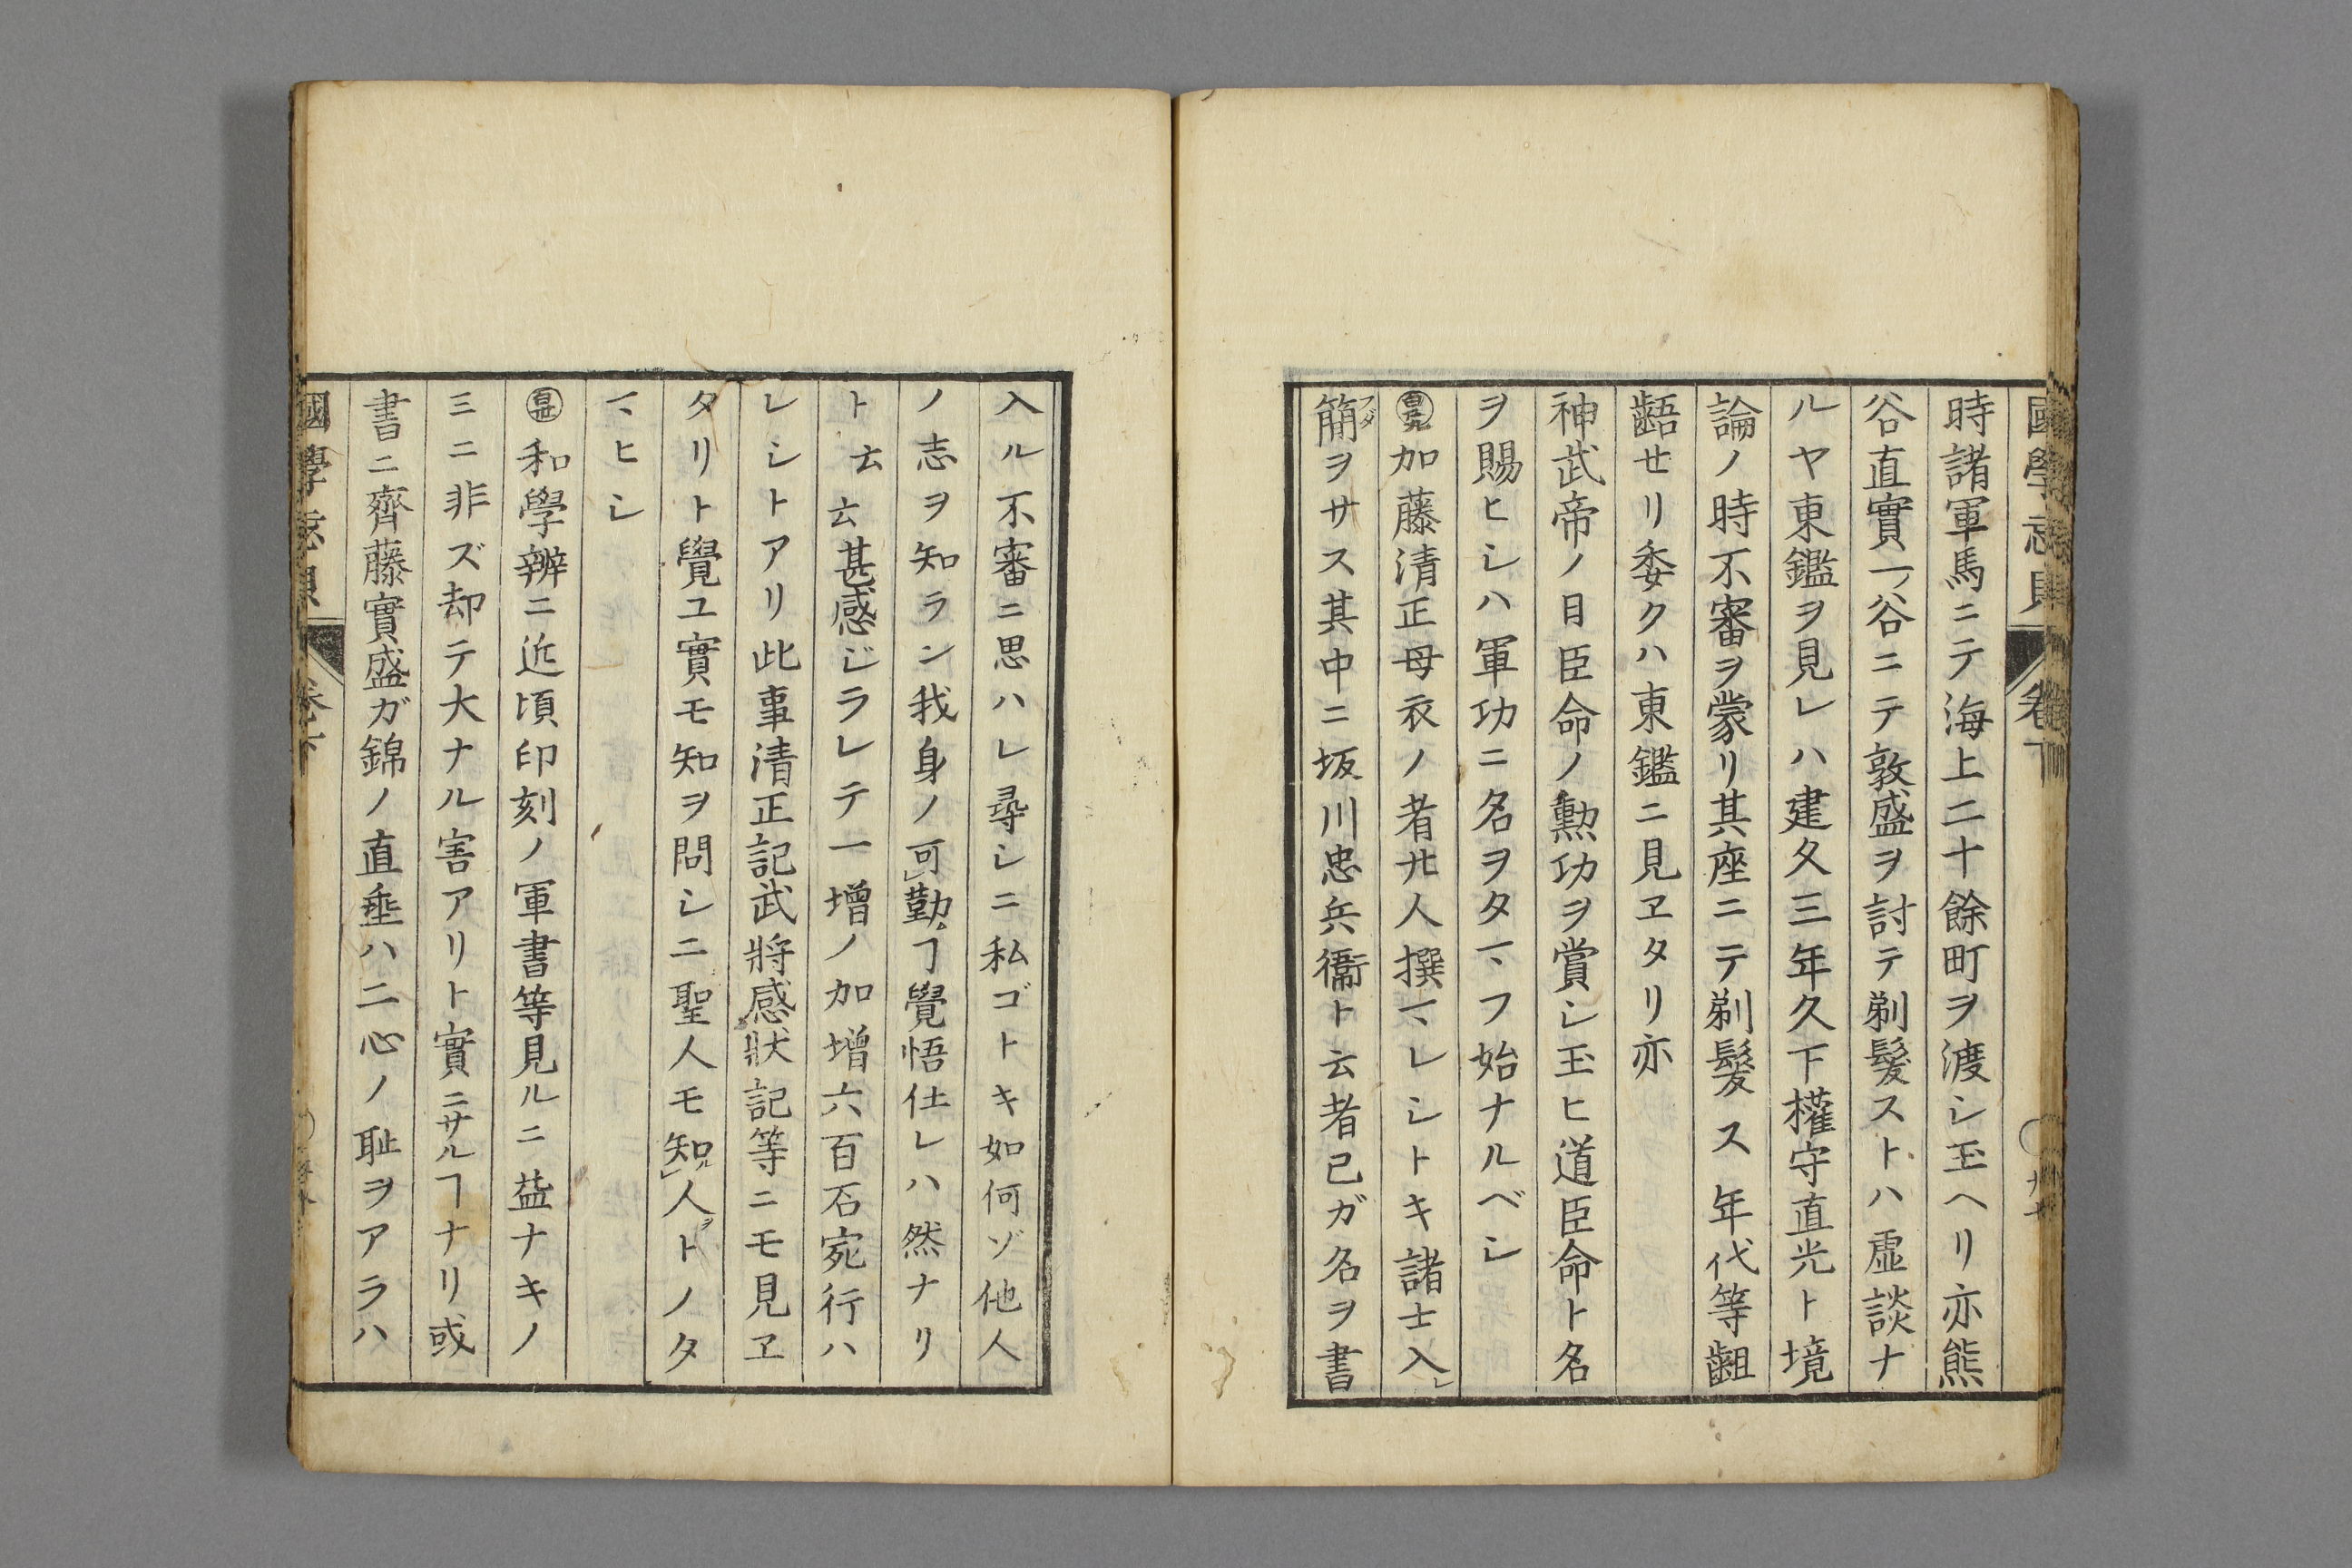 國學忘貝 卷下
時諸軍馬ニテ海上二十餘町ヲ渡シ玉ヘリ亦熊
谷直實一ノ谷ニテ敦盛ヲ討テ剃髮ストハ虛談ナ
ルヤ東鑑ヲ見レハ建久三年久下權守直光ト境
論ノ時不審ヲ蒙リ其座ニテ剃髮ス年代等齟
齬セリ委クハ東鑑ニ見ヱタリ亦
神武帝ノ日臣命ノ勲功ヲ賞シ玉ヒ道臣命ト名
ヲ賜ヒシハ軍功ニ名ヲタマフ始ナルベシ
加藤清正母衣ノ者廿人撰マレシトキ諸士入レ
簡ヲサス其中ニ坂川忠兵衞ト云者己ガ名ヲ書
フダ
入ル不審ニ思ハレ尋シニ私ゴトキ如何ゾ他人
ノ志ヲ知ラン我身ノ可レ勤ヿ覺悟仕レハ然ナリ
ト云云甚感ジラレテ一増ノ加增六百石宛行ハ
レシトアリ此事清正記武將感狀記等ニモ見ヱ
タリト覺ユ實モ知ヲ問シニ聖人モ知レ人ヲトノタ
マヒシ
和學辨ニ近頃印刻ノ軍書等見ルニ益ナキノ
ミニ非ズ却テ大ナル害アリト實ニサルヿナリ或
書ニ齊藤實盛ガ錦ノ直垂ハ二心ノ耻ヲアラハ
國學忘貝 卷下